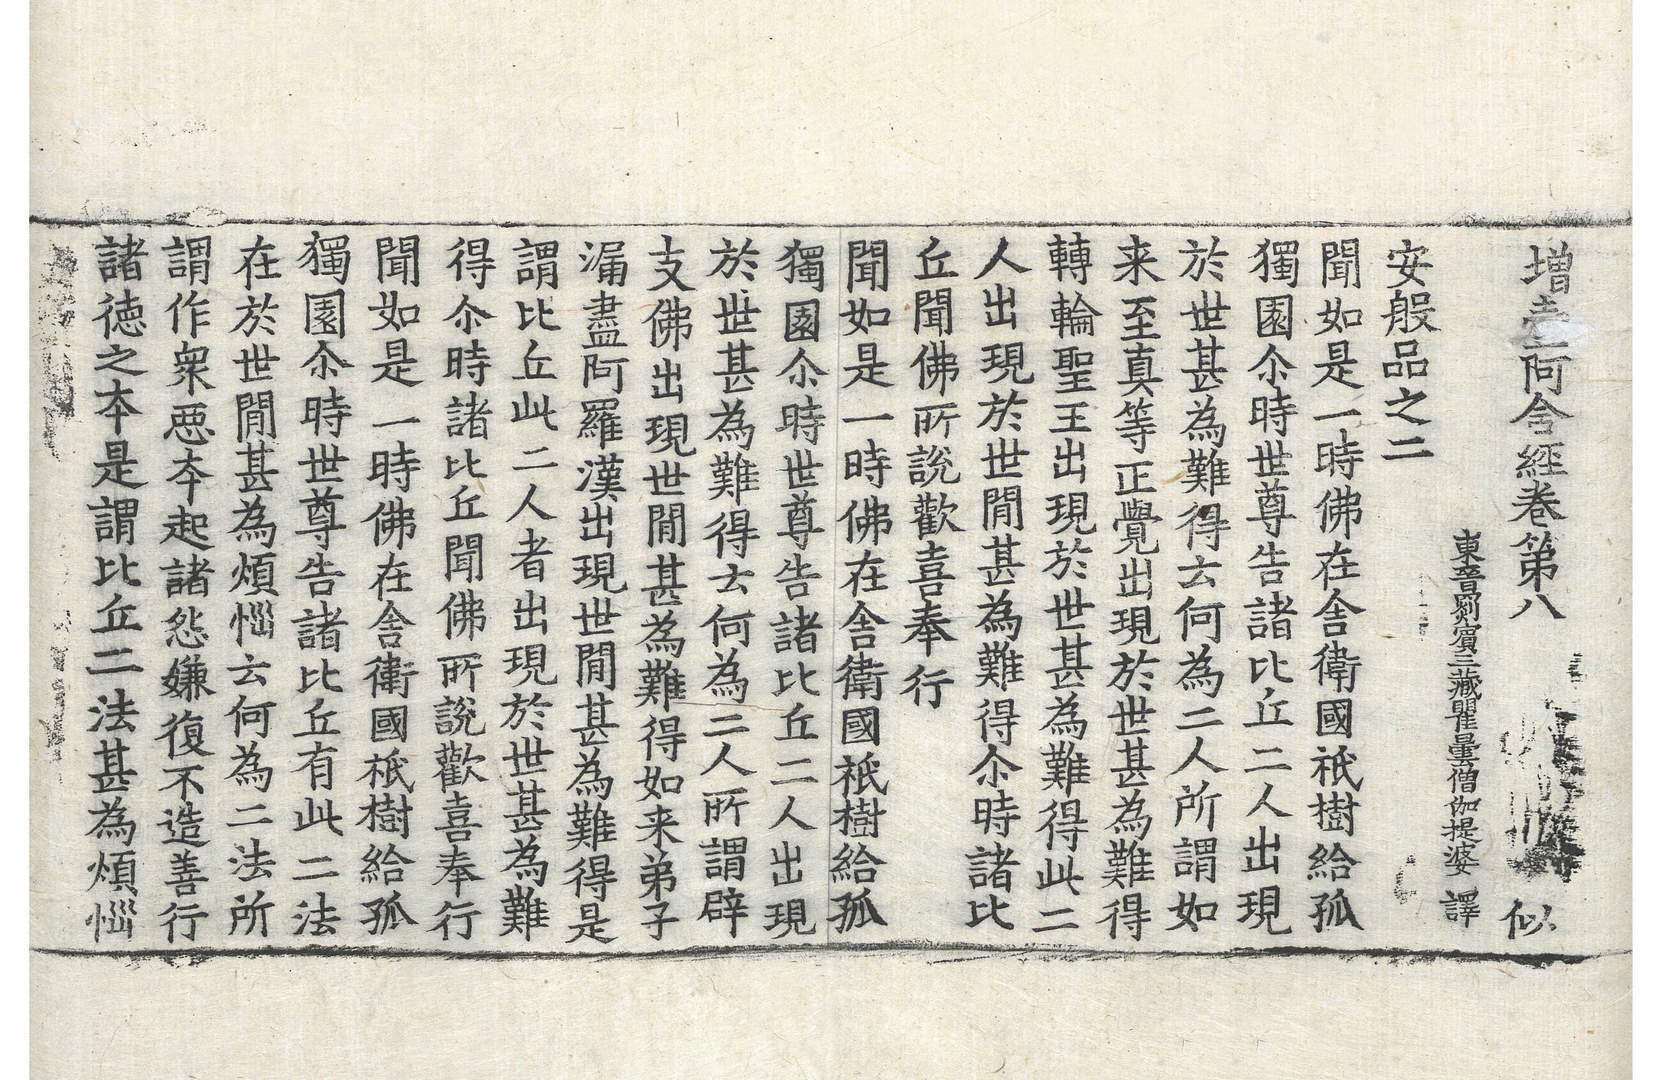 增壹阿含經卷第八 似
東晉罽賓三藏瞿曇僧伽提婆 譯
安般品之二
聞如是一時佛在舍衛國祇樹給孤
獨園尒時世尊告諸比丘二人出現
於世甚為難得云何為二人所謂如
来至真等正覺出現於世甚為難得
轉輪聖王出現於世甚為難得此二
人出現於世閒甚為難得尒時諸比
丘聞佛所說歡喜奉行
聞如是一時佛在舍衛國祇樹給孤
獨園尒時世尊告諸比丘二人出現
於世甚為難得云何為二人所謂辟
支佛出現世閒甚為難得如来弟子
漏盡阿羅漢出現世閒甚為難得是
謂比丘此二人者出現於世甚為難
得尒時諸比丘聞佛所說歡喜奉行
聞如是一時佛在舍衛國祇樹給孤
獨園尒時世尊告諸比丘有此二法
在於世閒甚為煩惱云何為二法所
謂作衆惡夲起諸怨嫌復不造善行
諸徳之夲是謂比丘二法甚為煩惱